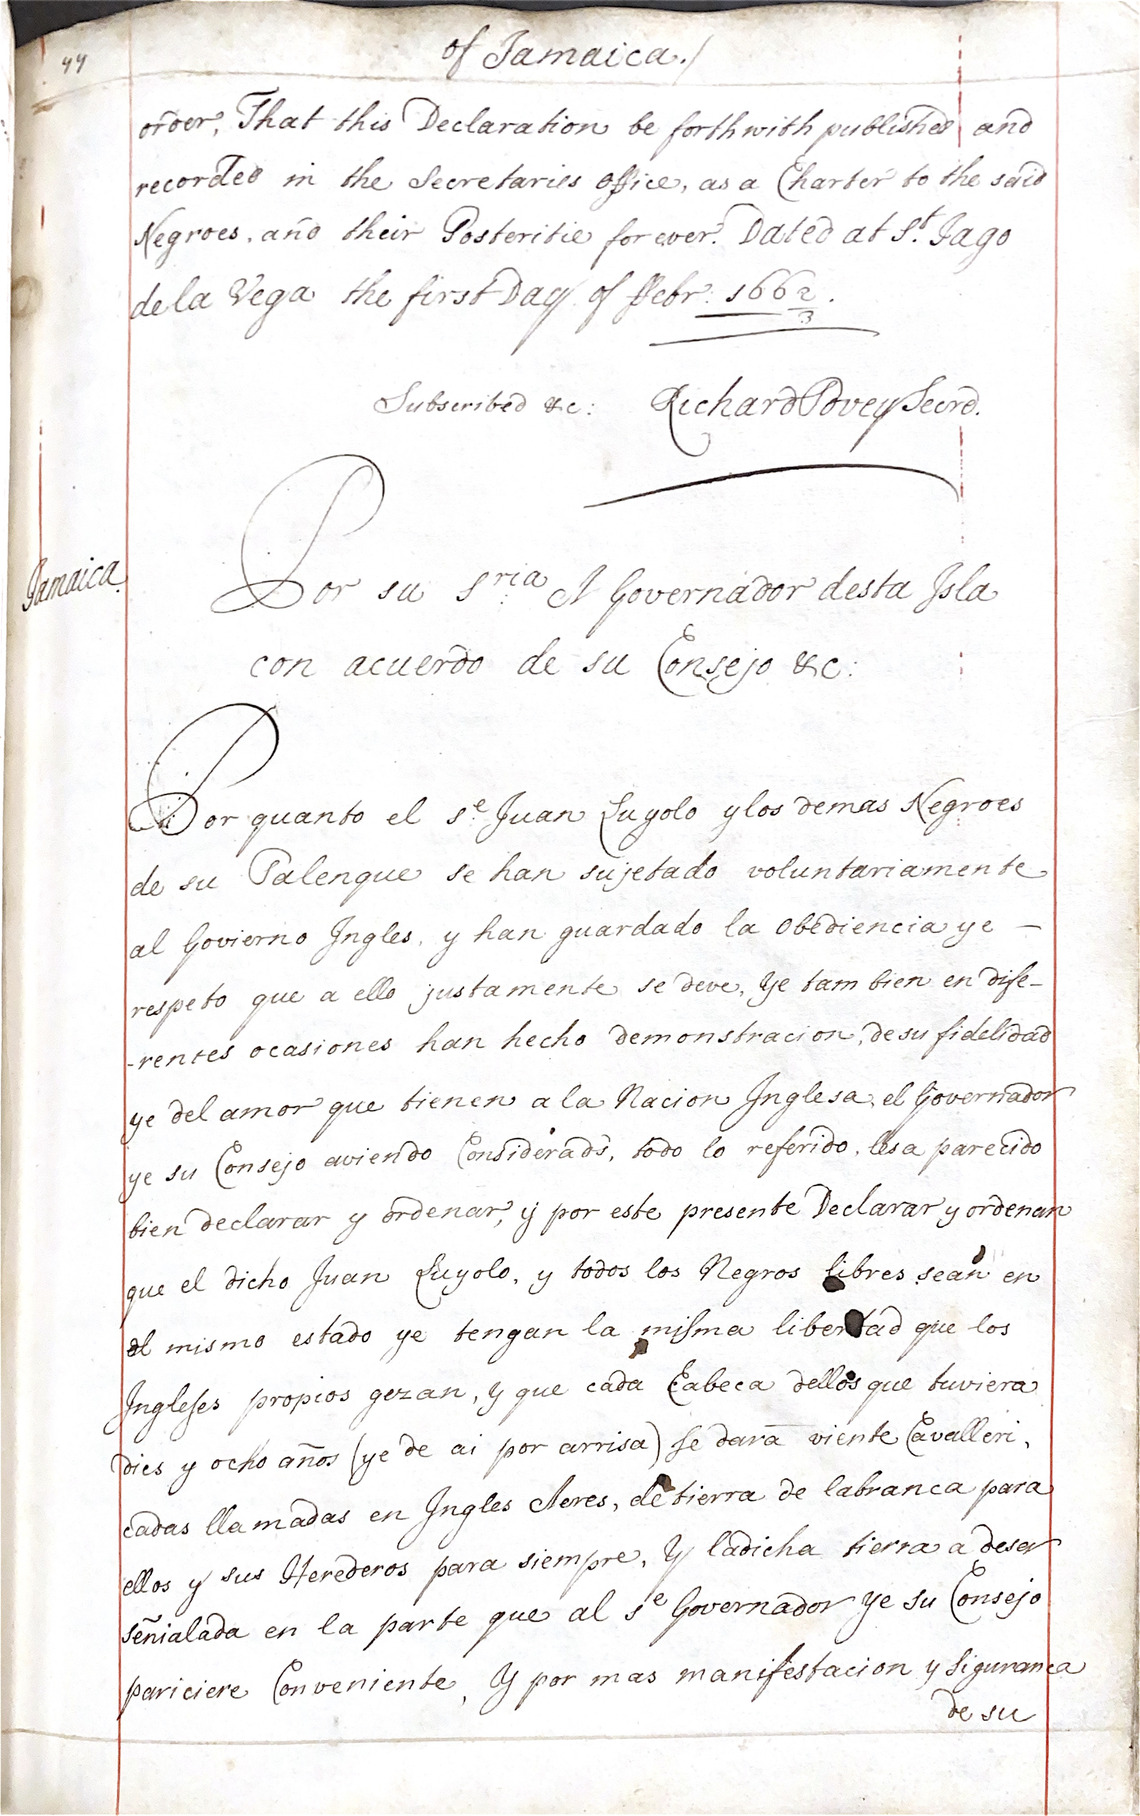 44
of Jamaica./
order, That this Declaration be forthwith published and
recorded in the Secretaries Office, as a Charter to the said
Negroes, and their Posteritie for ever. Dated at St. Jago
de la Vega the first Day of ffebr: 1662/3.
Subscribed &c: Richard Povey Secrd.
Jamaica.
Por su Sria el Governador desta Isla
con acuerdo de su Consejo &c:
Por quanto el Se. Juan Luyolo y los demas Negroes
de su Palenque se han sujetado voluntariamente
al Govierno Ingles, y han guardado la Obediencia ye —
respeto que a ello justamente se deve, Ye tam bien en dife-
-rentes ocasiones han hecho demonstracion, de su fidelidad
ye del amor que tienen a la Nacion Inglesa, el Governador
ye su Consejo aviendo Considerado, todo lo referido, lesa parecido
bien declarar y ordenar, y por este presente Declarar y ordenan
que el dicho Juan Luyolo, y todos los Negros libres sean en
el mismo estado ye tengan la misma libertad que los
Ingleses propios gezan, y que cada Cabeca dellos que tuviera
dies y ocho años (ye de ai por arrisa) se dara viente Cavalleri,
cadas llamadas en Ingles Acres, de tierra de labranca para
ellos y sus Herederos para siempre, Y ladicha tierra a deser
señialada en la parte que al Se Governador Ye su Consejo
pariciere Conveniente, Y por mas manifestacion y siguranca
de su